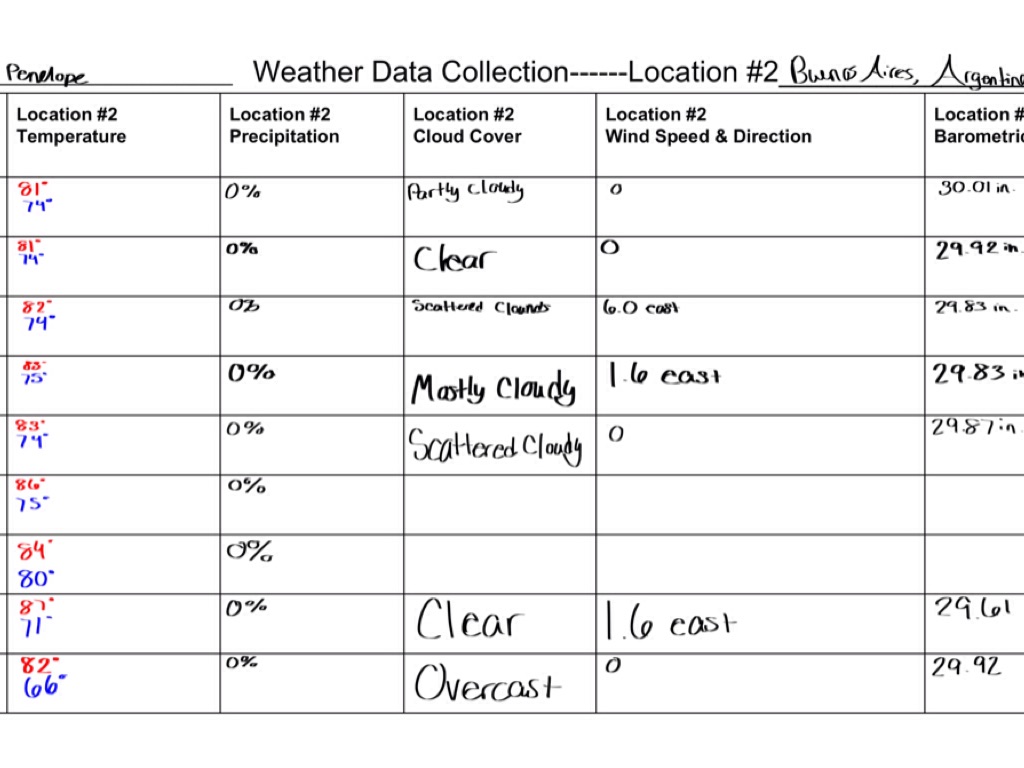 Penelope Weather Data Collection------Location #2 Buenos Aires, Argentina
Location #2 Location #2 Location #2 Location #2 Location #
Temperature Precipitation Cloud Cover Wind Speed & Direction Barometric
81° 0% Partly Cloudy 0 30.01 in.
74°
81° 0% Clear 0 29.92 in.
74°
82° 0% Scattered Clounds 6.0 east 29.83 in.
74°
83° 0% Mostly Cloudy 1.6 east 29.83 in
75°
83° 0% Scattered Cloudy 0 29.87 in.
74°
86° 0%
75°
84° 0%
80°
87° 0% Clear 1.6 east 29.61
71°
82° 0% Overcast 0 29.92
66°